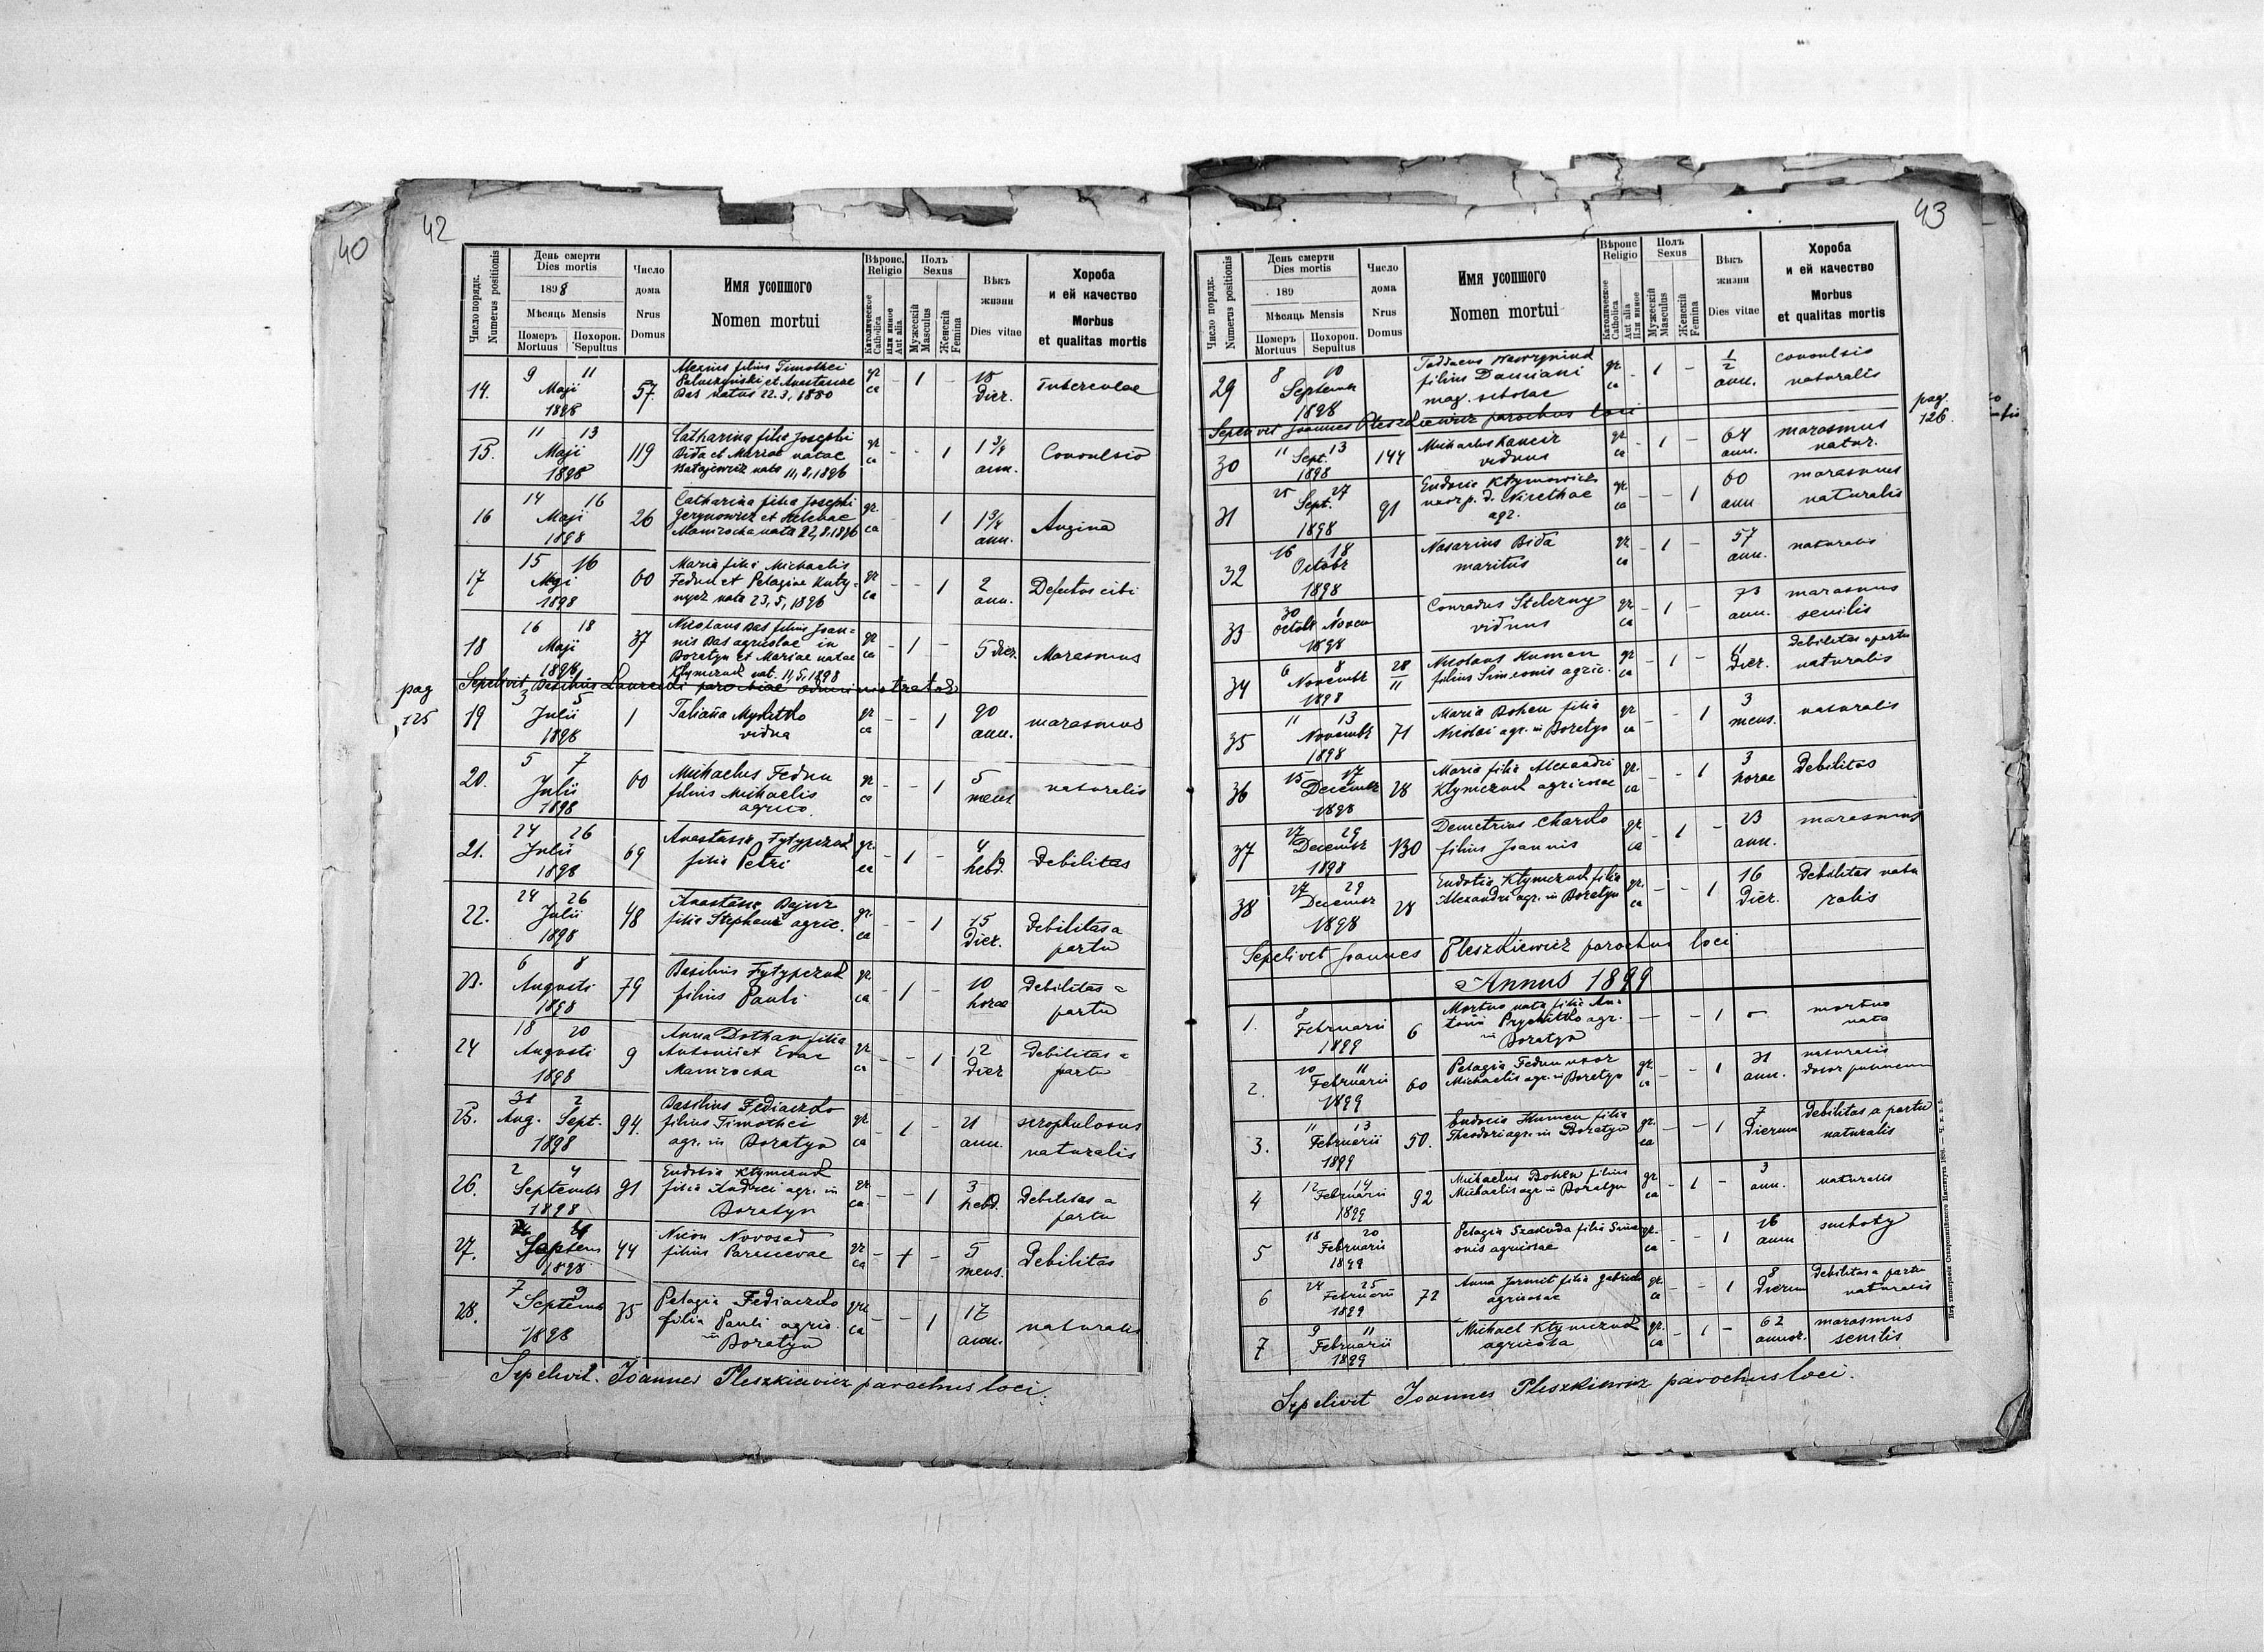 40
42
Число порядк.
Numerus positionis
День смерти
Dies mortis
1898
Мѣсяць Mensis
Померъ Mortuus
Похорон. Sepultus
Число дома
Nrus Domus
Имя усопшого
Nomen mortui
Вѣроис. Religio
Католическое Catholica
Или иное Aut alia
Полъ Sexus
Мужескій Masculus
Женскій Femina
Вѣкъ жизни
Dies vitae
Хороба и ей качество
Morbus et qualitas mortis
14. 9 11 Maji 1898 57. Alexius filius Timothei et Anastasiae Das natus gr ca - 1 - dier. Tuberculae
15. 11 13 Maji 1898 119 Catharina filia Josephi Bida et Mariae natae nata 11,8,1896 gr ca - - 1 1 3/4 ann. Convulsio
16 14 16 Maji 1898 26 Catharina filia Josephi Gerynowicz et Helenae nata 22,8,1896 gr. ca - 1 1 3/4 ann. Angina
17 15 16 Maji 1898 60 Maria filia Michaelis Fedun et Pelagiae nata 23,5,1896 gr ca - - 1 2 ann. Defectus cibi
18 16 18 Maji 1898 37 Nicolaus Das filius Joannis Das agricolae in Boratyn et Mariae natae Klymczuk nat. 11,5,1898 gr ca - 1 - 5 dier. Marasmus
Sepelivit Basilius parochiae administrator
pag 125
19 3 5 Julii 1898 1 Tatiana vidua gr ca - - 1 90 ann. marasmus
20. 5 7 Julii 1898 60 Michaelus Fedun filius Michaelis agrico. gr ca - - 1 5 mens. naturalis
21. 24 26 Julii 1898 69 Anastasia Fytypczuk filia Petri gr. ca - 1 - 4 hebd. Debilitas
22. 24 26 Julii 1898 48 Anastasia filia Stephani agric. gr. ca - - 1 15 dier. Debilitas a partu
23. 6 8 Augusti 1898 79 Basilius Fytypczuk filius Pauli gr. ca - 1 - 10 horae Debilitas a partu
24 18 20 Augusti 1898 9 Anna filia Antonii et Evae gr. ca - - 1 12 dier Debilitas a partu
25. 31 2 Aug. Sept. 1898 94. Basilius Fediaczko filius Timothei agr. in Boratyn gr ca - 1 - 21 ann. scrophulosus naturalis
26. 2 4 Septembr 1898 91 Eudoxia Klymczuk filia Andrei agr. in Boratyn gr ca - - 1 3 hebd. Debilitas a partu
27. 4 Septem 1898 44 Nicon Novosad filius gr ca - 1 - 5 mens. Debilitas
28. 7 9 Septemb 1898 35 Pelagia Fediaczko filia Pauli agric. in Boratyn gr. ca - - 1 12 ann. naturalis
Sepelivit. Joannes Pleszkiewicz parochus loci.
43
Число порядк.
Numerus positionis
День смерти
Dies mortis
189
Мѣсяць Mensis
Померъ Mortuus
Похорон. Sepultus
Число дома
Nrus Domus
Имя усопшого
Nomen mortui
Вѣроис Religio
Католическое Catholica
Aut alia Или иное
Полъ Sexus
Мужескій Masculus
Женскій Femina
Вѣкъ жизни
Dies vitae
Хороба и ей качество
Morbus et qualitas mortis
29 8 10 Septemb 1898 filius Damiani mag. scholae gr. ca - 1 - 1/2 ann. convulsio naturalis
Sepelivit Joannes Pleszkiewicz parochus loci
pag. 126.
30 11 13 Sept. 1898 144 Michaelus viduus gr ca - 1 - 64 ann. marasmus natur.
31 25 27 Sept. 1898 91 Eudocia Klymowicz uxor p. d. Nicethae agr. gr ca - - 1 60 ann marasmus naturalis
32 16 18 Octobr 1898 Nasarius Bida maritus gr ca - 1 - 57 ann. naturalis
33 30 1 Octobr Novem 1898 Conradus viduus gr. ca - 1 - 73 ann. marasmus senilis
34 6 8 Novembr 1898 28/11 Nicolaus Humen filius Simeonis agric. gr ca - 1 - 11 dier. debilitas a partu naturalis
35 11 13 Novembr 1898 71 Maria Bohen filia Nicolai agr. in Boratyn gr ca - - 1 3 mens. naturalis
36 15 17 Decembr 1898 28 Maria filia Alexandri Klymczuk agricolae gr. ca - - 1 3 horae Debilitas
37 27 29 Decembr 1898 130 Demetrius Charko filius Joannis gr. ca - 1 - 23 ann. marasmus
38 27 29 Decembr 1898 28 Eudoxia Klymczuk filia Alexandri agr. in Boratyn gr. ca - - 1 16 dier. Debilitas naturalis
Sepelivit Joannes Pleszkiewicz parochus loci
Annus 1899
1. 8 Februarii 1899 6 Mortuo nata filia Antonii agr. in Boratyn — - 1 - mortuo nata
2. 10 11 Februarii 1899 60 Pelagia Fedun uxor Michaelis agr. in Boratyn gr. ca - - 1 31 ann. naturalis dolor pulmonum
3. 11 13 Februarii 1899 50. Eudocia Humen filia Theodori agr. in Boratyn gr. ca - - 1 7 dierum debilitas a partu naturalis
4 12 14 Februarii 1899 92 Michaelus Bohen filius Michaelis agr. in Boratyn gr ca - 1 - 3 ann. naturalis
5 18 20 Februarii 1899 Pelagia filia Simeonis agricolae gr. ca - - 1 16 ann suchoty
6 24 25 Februarii 1899 72 Anna filia Gabrieli agricolae gr. ca - - 1 8 dierum debilitas a partu naturalis
7 9 11 Februarii 1899 Michael Klymczuk agricola gr. ca - 1 - 62 annor. marasmus senilis
Sepelivit Joannes Pleszkiewicz parochus loci.